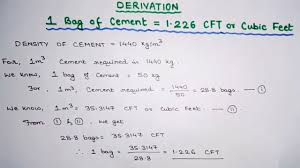 DERIVATION
1 Bag of Cement = 1.226 CFT or Cubic Feet
DENSITY OF CEMENT = 1440 kg/m³
For, 1m³ Cement required is 1440 kg.
We know, 1 bag of Cement = 50 kg
For 1m³, Cement required = 1440/50 = 28.8 bags —— (I)
We know, 1m³ = 35.3147 CFT or Cubic Feet. —— (II)
From (I) & (II), we get
28.8 bags = 35.3147 CFT
∴ 1 bag = 35.3147/28.8 = 1.226 CFT